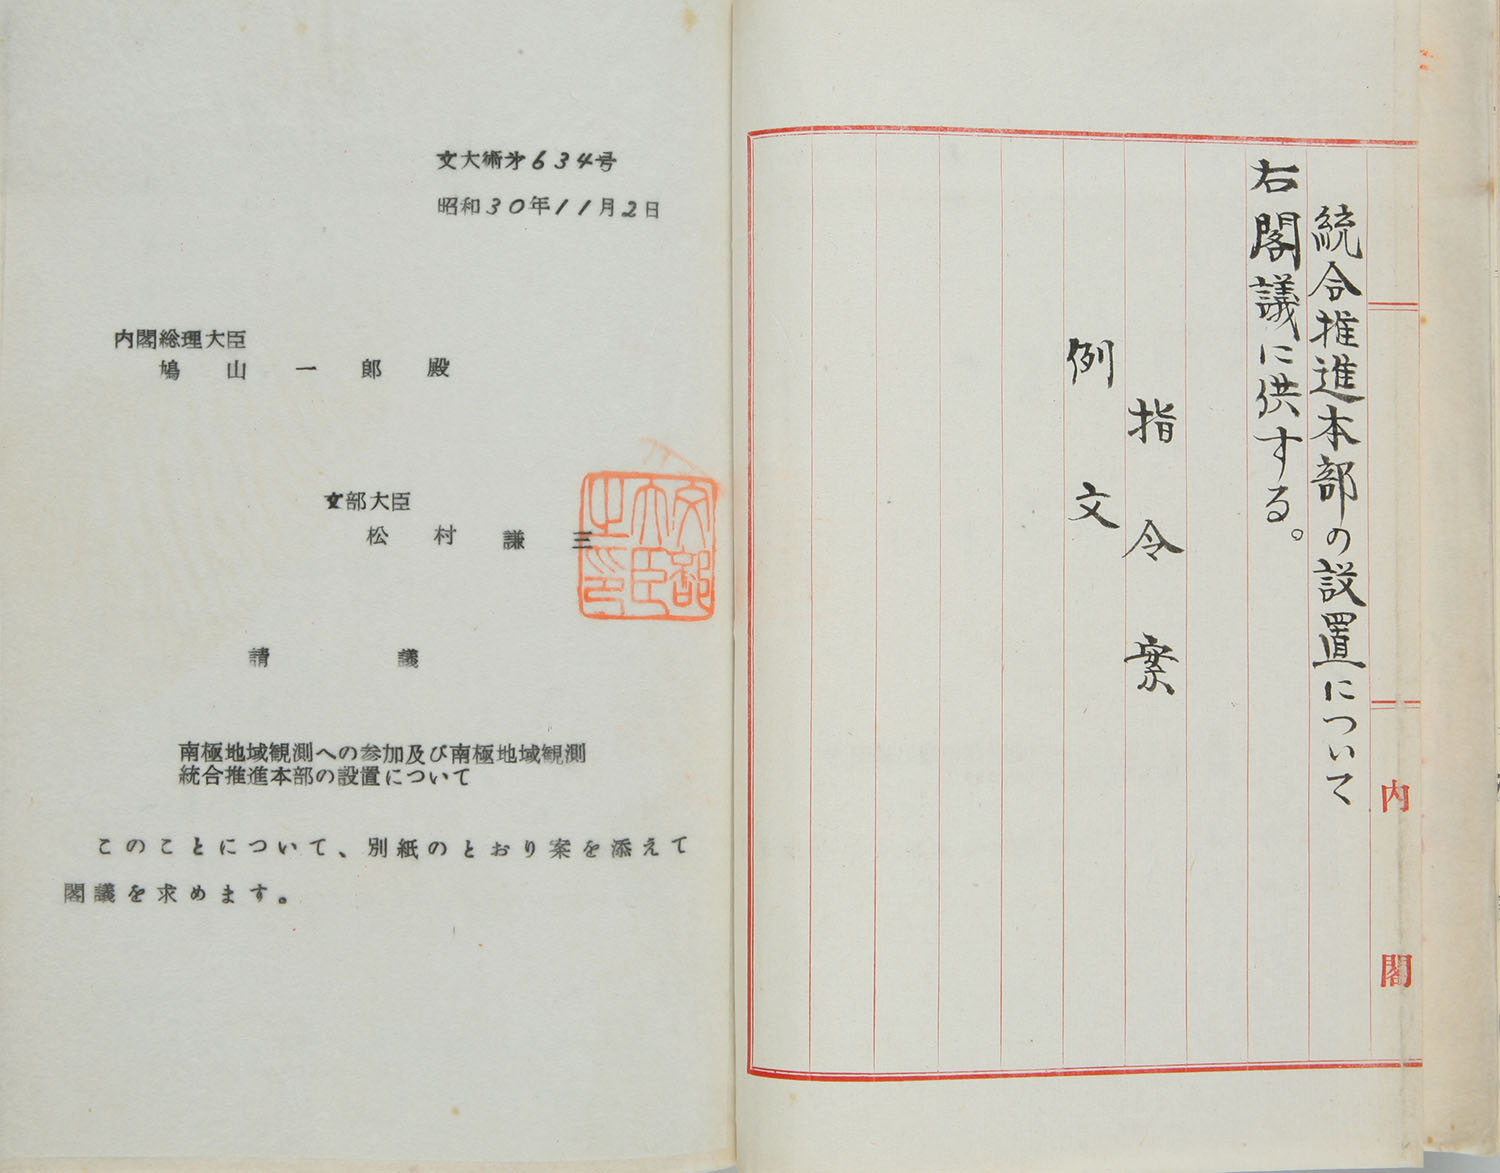 統合推進本部の設置について
右閣議に供する。
指令案
例文
内閣
文大術才634号
昭和30年11月2日
内閣総理大臣
鳩山一郎殿
文部大臣
松村謙三
文部大臣之印
請議
南極地域観測への参加及び南極地域観測
統合推進本部の設置について
このことについて、別紙のとおり案を添えて
閣議を求めます。